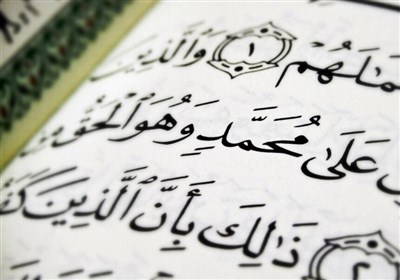 مَٰلَهُمْ ١ وَٱلَّذِينَ
عَلَىٰ مُحَمَّدٍ وَهُوَ ٱلْحَقُّ
٢ ذَٰلِكَ بِأَنَّ ٱلَّذِينَ كَفَ